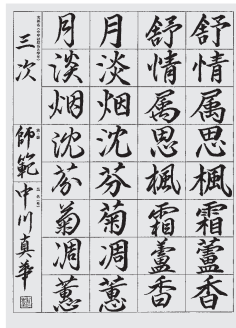 舒情属思楓霜蘆香
舒情属思楓霜蘆香
月淡烟沈芬菊凋蕙
月淡烟沈芬菊凋蕙
三次 師範 中川真華